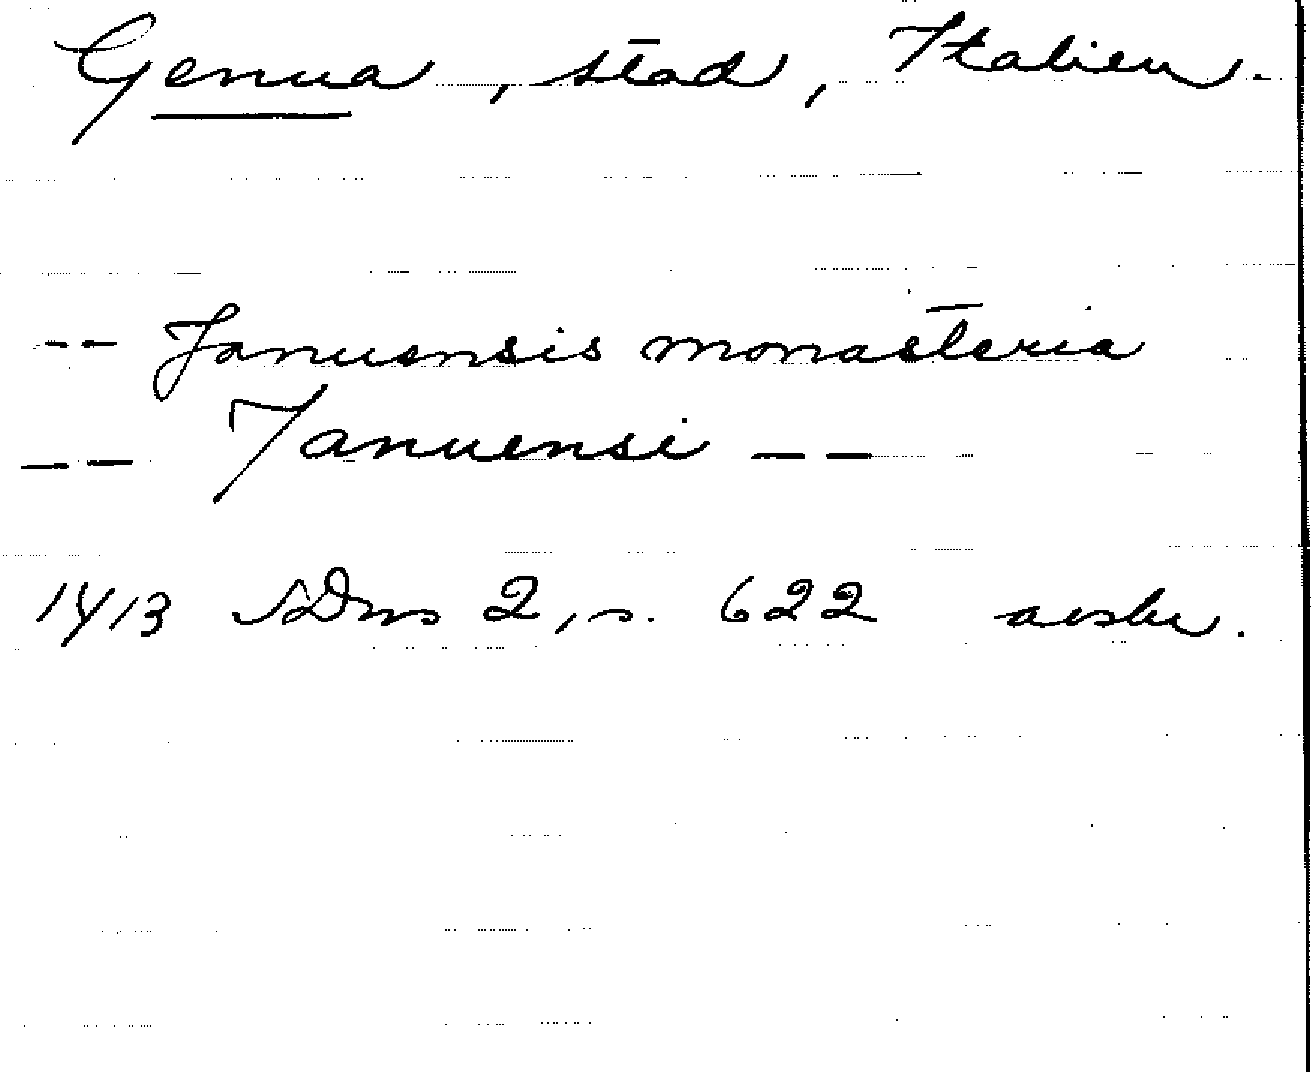 Genua, stad, Italien.
-- Januensis monasteria
-- Januensi --
1413 SDns 2, s. 622 avskr.